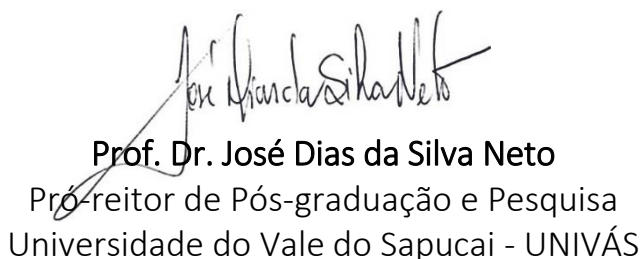 José Dias da Silva Neto
Prof. Dr. José Dias da Silva Neto
Pró-reitor de Pós-graduação e Pesquisa
Universidade do Vale do Sapucai - UNIVÁS